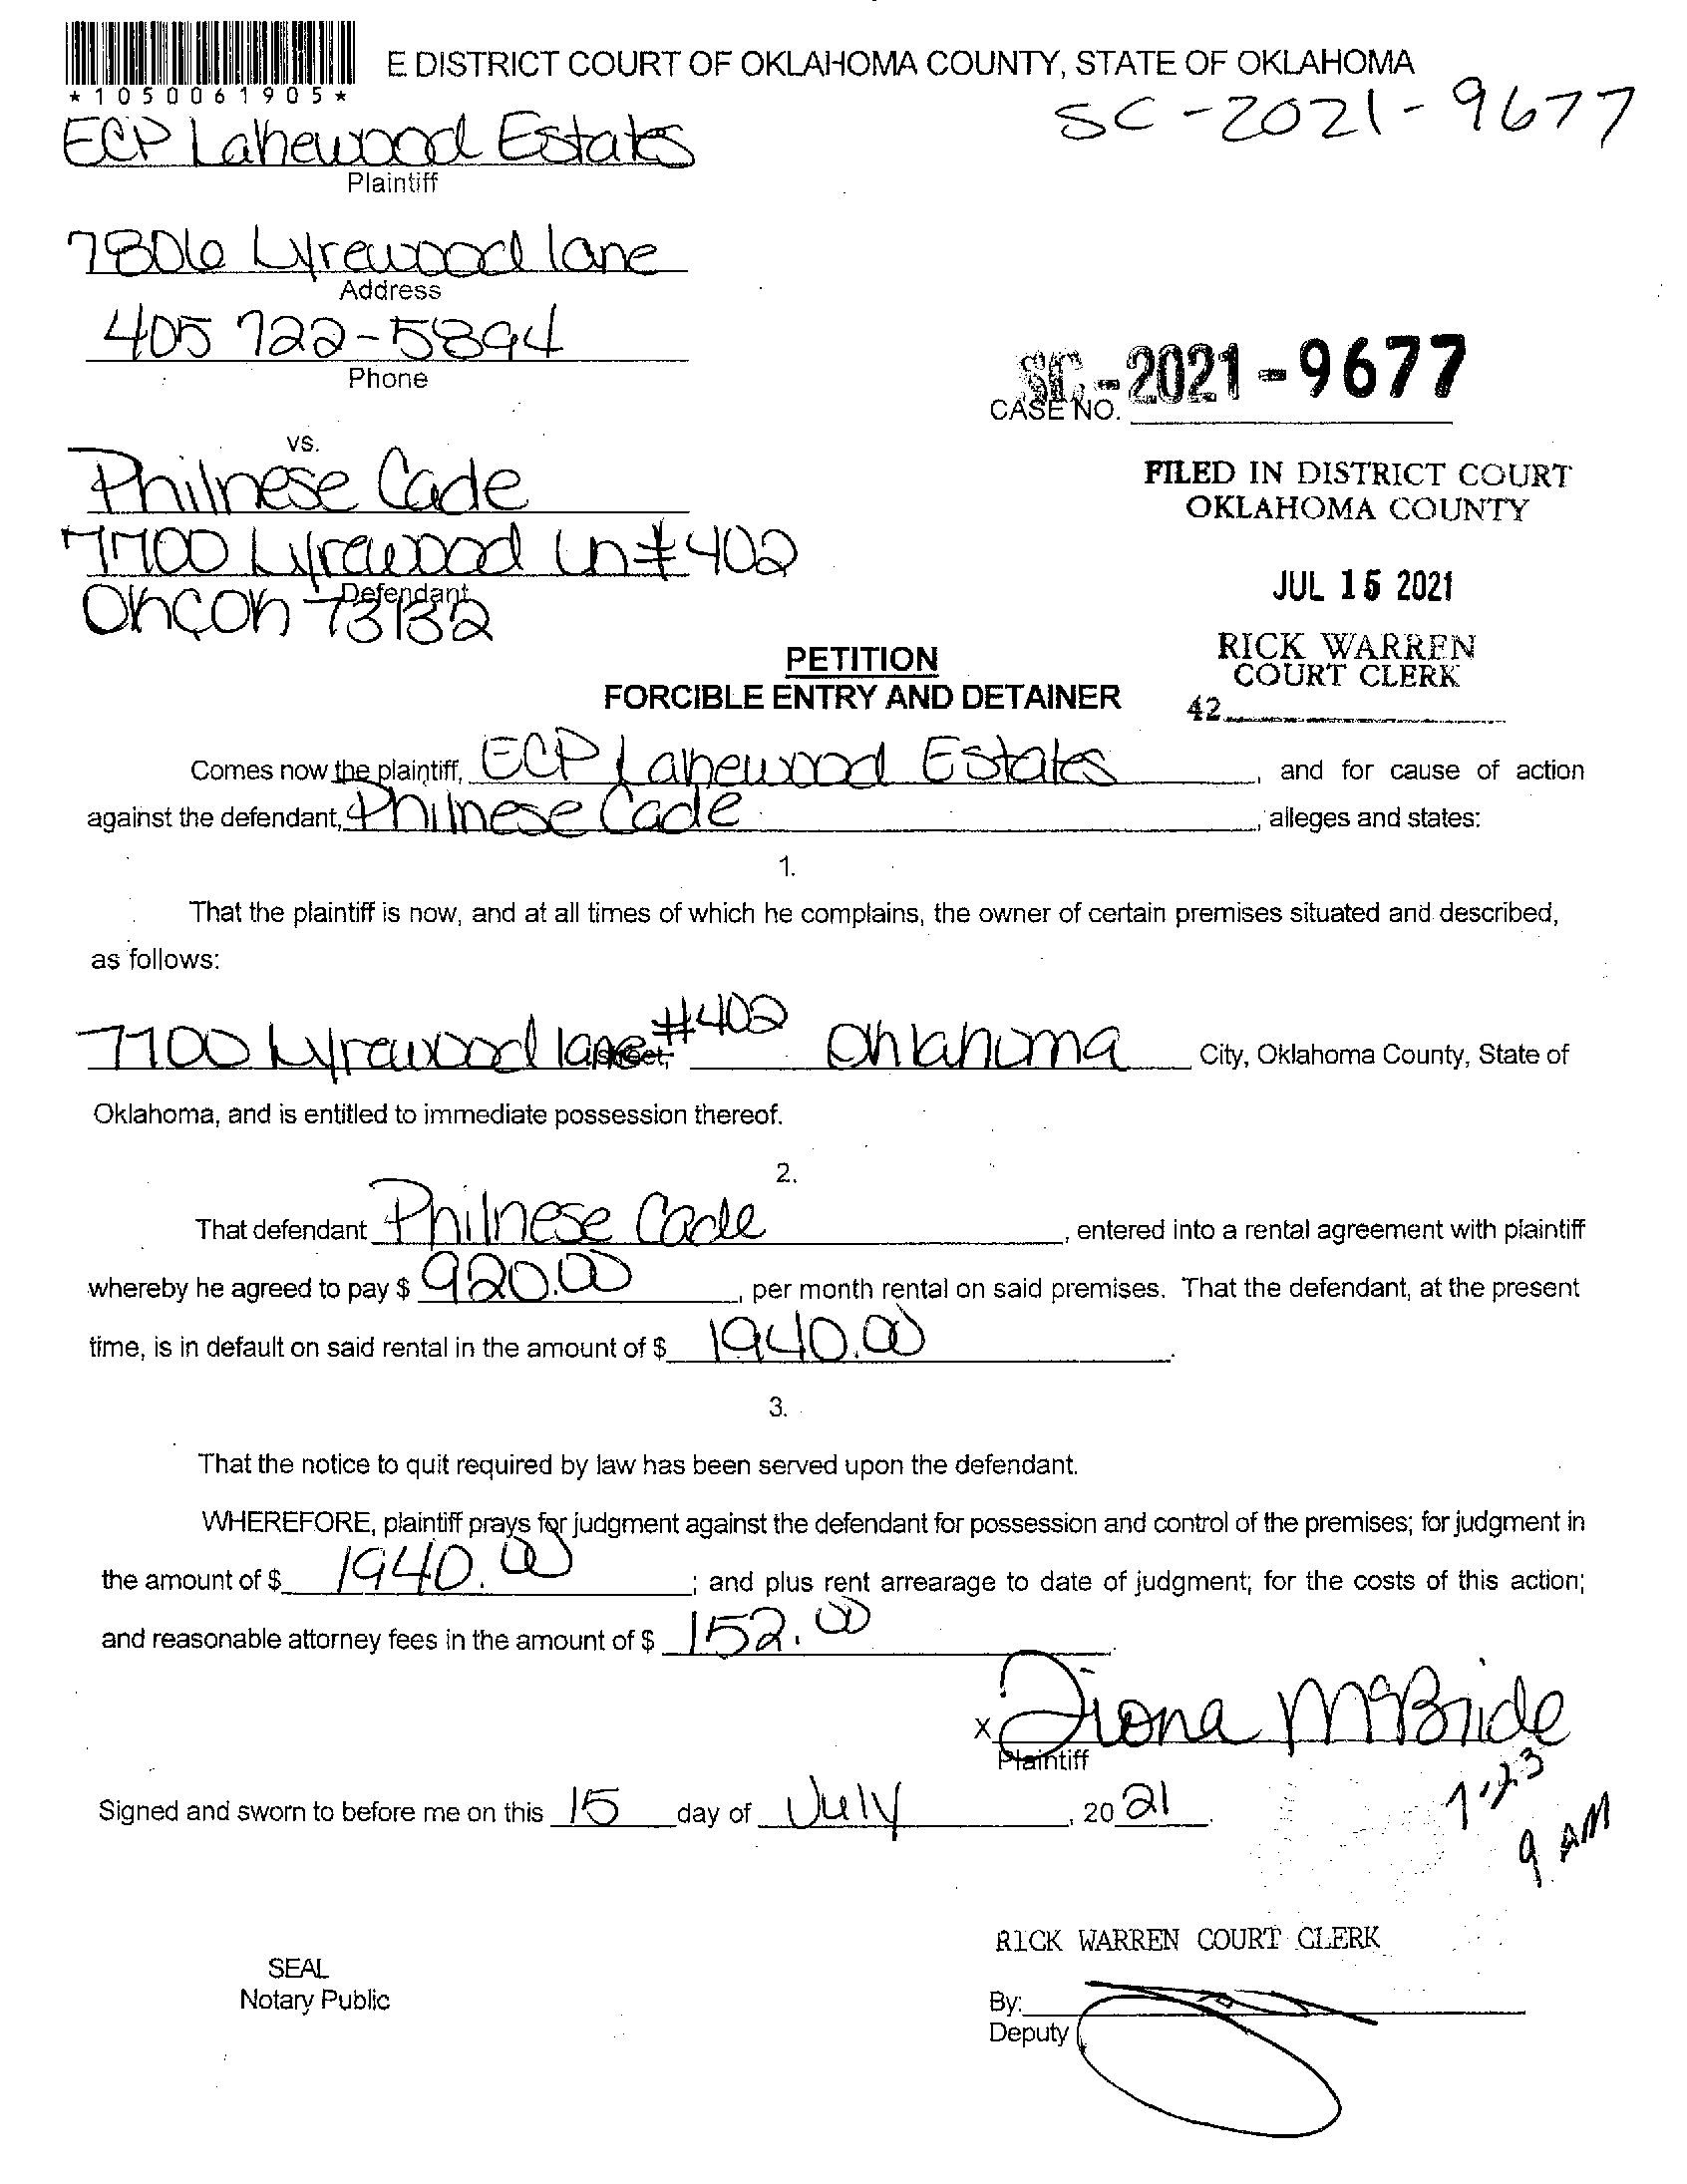 *1050061905*
E DISTRICT COURT OF OKLAHOMA COUNTY, STATE OF OKLAHOMA
SC-2021-9677
ECP Lakewood Estates
Plaintiff
7806 Lyrewood lane
Address
405 722-5894
Phone
SC-2021-9677
CASE NO.
vs.
Philnese Cade
7700 Lyrewood Ln #402
Defendant
OKCOK 73132
FILED IN DISTRICT COURT
OKLAHOMA COUNTY
JUL 15 2021
RICK WARREN
COURT CLERK
42
PETITION
FORCIBLE ENTRY AND DETAINER
Comes now the plaintiff, ECP Lakewood Estates, and for cause of action
against the defendant, Philnese Cade, alleges and states:
1.
That the plaintiff is now, and at all times of which he complains, the owner of certain premises situated and described,
as follows:
7700 Lyrewood lane #402 street, Oklahoma City, Oklahoma County, State of
Oklahoma, and is entitled to immediate possession thereof.
2.
That defendant Philnese Cade, entered into a rental agreement with plaintiff
whereby he agreed to pay $ 920.00, per month rental on said premises. That the defendant, at the present
time, is in default on said rental in the amount of $ 1940.00.
3.
That the notice to quit required by law has been served upon the defendant.
WHEREFORE, plaintiff prays for judgment against the defendant for possession and control of the premises; for judgment in
the amount of $ 1940.00; and plus rent arrearage to date of judgment; for the costs of this action;
and reasonable attorney fees in the amount of $ 152.00.
x Diona McBride
Plaintiff
7-23
9 AM
Signed and sworn to before me on this 15 day of July, 2021.
RICK WARREN COURT CLERK
SEAL
Notary Public
By:
Deputy